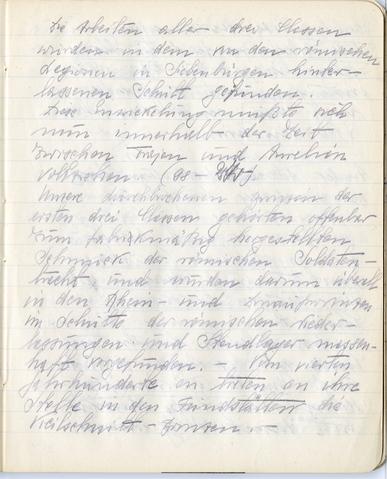 Die Arbeiten aller drei Classen
wurden in dem von den römischen
Legionen in Siebenbürgen hinter-
lassenen Schutt gefunden.
Diese Entwickelung mußte sich
nun innerhalb der Zeit
zwischen Trajan und Aurelian
vollziehen (98-
Unsere durchbrochenen der
ersten drei Classen gehörten offenbar
zum fabrikmäßig hergestellten
Schmuck der römischen Soldaten-
tracht, und wurden darum überall
in den Rhein- und Donauprovinzen
im Schutte der römischen Nieder-
lassungen und Standlager massen-
haft vorgefunden. – Vom vierten
Jahrhunderte an treten an ihre
Stelle in den Fundstätten die
Keilschnitt-Bronzen. –